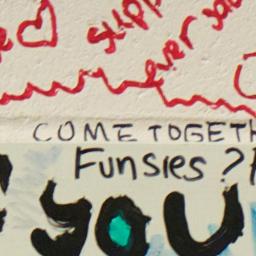 supp
ever
COME TOGETH
Funsies?
YOU